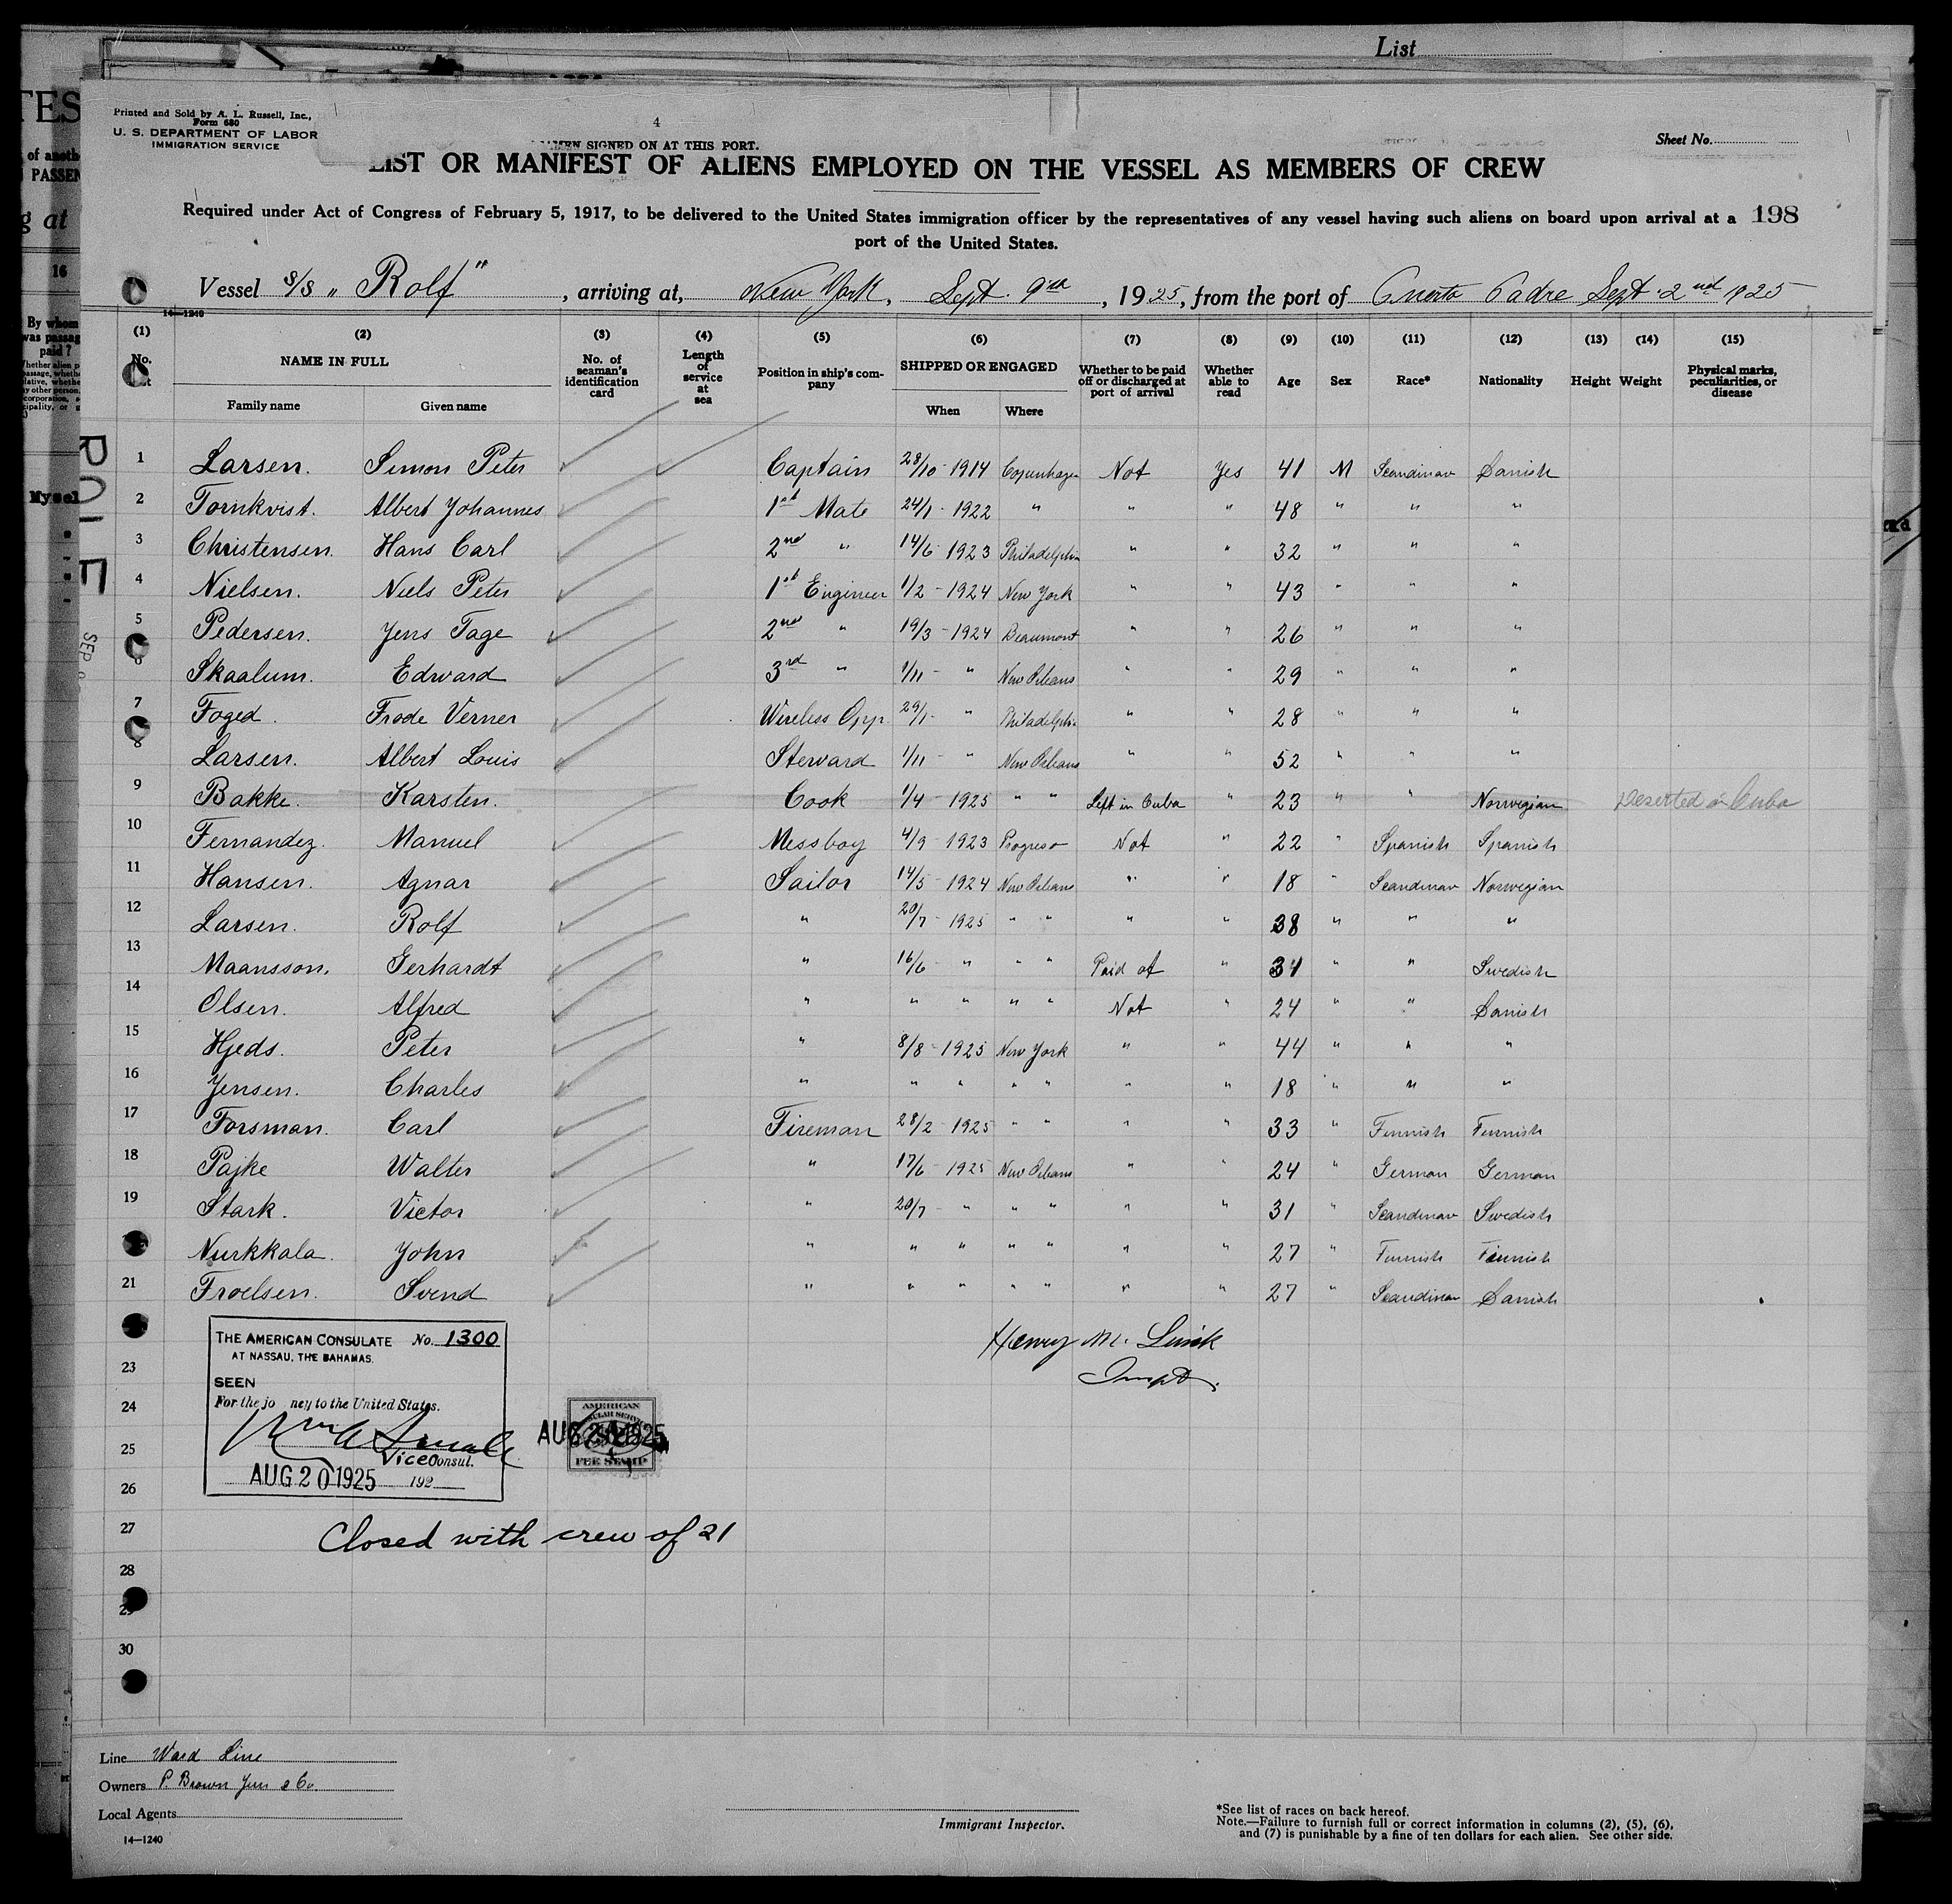 List
TES
of anoth
PASSEN
g at
16
By whom
was passag
paid ?
Mysel
ROLF
SEP
Printed and Sold by A. L. Russell, Inc.,
Form 680
U. S. DEPARTMENT OF LABOR
IMMIGRATION SERVICE
4
SIGNED ON AT THIS PORT.
Sheet No.
LIST OR MANIFEST OF ALIENS EMPLOYED ON THE VESSEL AS MEMBERS OF CREW
Required under Act of Congress of February 5, 1917, to be delivered to the United States immigration officer by the representatives of any vessel having such aliens on board upon arrival at a 198
port of the United States.
Vessel S/S "Rolf", arriving at, New York, Sept. 9th, 1925, from the port of Puerto Padre Sept. 2nd 1925
14—1240
(1) (2) (3) (4) (5) (6) (7) (8) (9) (10) (11) (12) (13) (14) (15)
No. NAME IN FULL No. of seaman's identification card Length of service at sea Position in ship's company SHIPPED OR ENGAGED Whether to be paid off or discharged at port of arrival Whether able to read Age Sex Race* Nationality Height Weight Physical marks, peculiarities, or disease
Family name Given name When Where
1 Larsen. Simon Peter Captain 28/10-1914 Copenhagen Not Yes 41 M Scandinav Danish
2 Tornkvist. Albert Johannes 1st Mate 24/1-1922 " " " 48 " " "
3 Christensen. Hans Carl 2nd " 14/6 1923 Philadelphia " " 32 " " "
4 Nielsen. Niels Peter 1st Engineer 1/2-1924 New York " " 43 " " "
5 Pedersen. Jens Tage 2nd " 19/3-1924 Beaumont " " 26 " " "
6 Skaalum. Edward 3rd " 1/11- " New Orleans " " 29 " " "
7 Foged. Frode Verner Wireless Opp. 29/1- " Philadelphia " " 28 " " "
8 Larsen. Albert Louis Steward 1/11- " New Orleans " " 52 " " "
9 Bakke. Karsten. Cook 1/4-1925 " " Left in Cuba " 23 " " Norwegian Deserted in Cuba
10 Fernandez. Manuel Messboy 4/9-1923 Progreso Not " 22 " Spanish Spanish
11 Hansen. Agnar Sailor 14/5-1924 New Orleans " " 18 " Scandinav Norwegian
12 Larsen. Rolf " 20/7-1925 " " " " 38 " " "
13 Maansson. Gerhardt " 16/6- " " " Paid of " 34 " " Swedish
14 Olsen. Alfred " " " " " Not " 24 " " Danish
15 Hjeds. Peter " 8/8-1925 New York " " 44 " " "
16 Jensen. Charles " " " " " " " 18 " " "
17 Forsman. Carl Fireman 28/2-1925 " " " " 33 " Finnish Finnish
18 Pajke Walter " 17/6-1925 New Orleans " " 24 " German German
19 Stark. Victor " 20/7- " " " " " 31 " Scandinav Swedish
Nurkkala. John " " " " " " " 27 " Finnish Finnish
21 Froelsen. Svend " " " " " " " 27 " Scandinav Danish
THE AMERICAN CONSULATE No. 1300
AT NASSAU, THE BAHAMAS.
SEEN
For the jo ney to the United States.
Vice Consul.
AUG 20 1925 192
AMERICAN
CONSULAR SERVICE
AUG 20 1925
FEE STAMP
Henry M.
Inspt.
23
24
25
26
27
Closed with crew of 21
28
29
30
Line Ward Line
Owners P. Brown Jun & Co.
Local Agents
14—1240
Immigrant Inspector.
*See list of races on back hereof.
Note.—Failure to furnish full or correct information in columns (2), (5), (6),
and (7) is punishable by a fine of ten dollars for each alien. See other side.